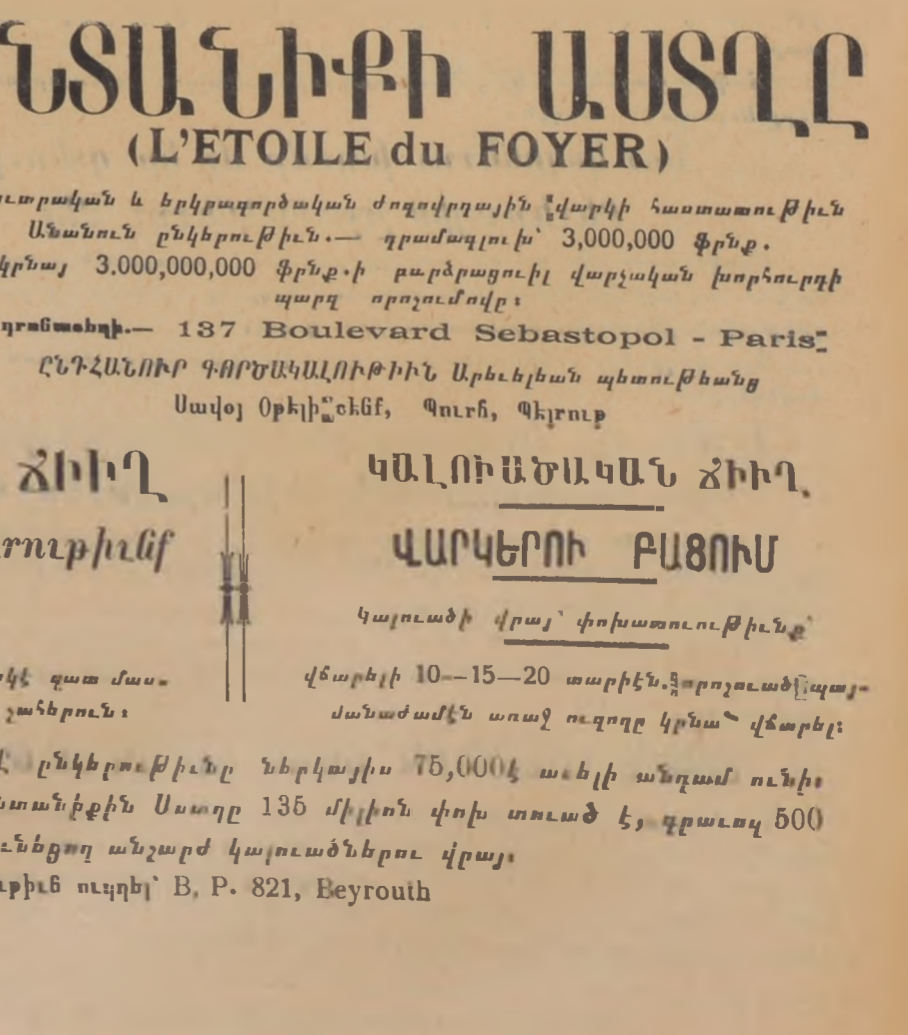 ՆՏԱՆԻՔԻ ԱՍՏՂԸ
(L'ETOILE du FOYER)
և երկրագործական ժողովրդային վարկի հաստատութիւն
Անանուն ընկերութիւն.— դրամագլուխ՝ 3,000,000 ֆրնք.
կրնայ 3.000,000,000 ֆրնք.ի բարձրացուիլ վարչական խորհուրդի
պարզ որոշումովը։
137 Boulevard Sebastopol - Paris
ԸՆԴՀԱՆՈՒՐ ԳՈՐԾԱԿԱԼՈՒԹԻՒՆ Արեւելեան պետութեանց
Սավօյ Օթելի շէնք, Պուրճ, Պէյրութ
ՃԻՒՂ
րութիւնք
կէ զատ մաս-
շահերուն։
ԿԱԼՈՒԱԾԱԿԱՆ ՃԻՒՂ
ՎԱՐԿԵՐՈՒ ԲԱՑՈՒՄ
կալուածի վրայ՝ փոխառուութիւնք՝
վճարելի 10—15—20 տարիէն. որոշուած պայ-
մանաժամէն առաջ ուզողը կրնայ վճարել։
ընկերութիւնը ներկայիս 75,000է աւելի անդամ ունի։
նտանիքին Աստղը 135 միլիոն փոխ տուած է, գրաւոյ 500
ւնեցող անշարժ կալուածներու վրայ։
ուղղել՝ B. P. 821, Beyrouth